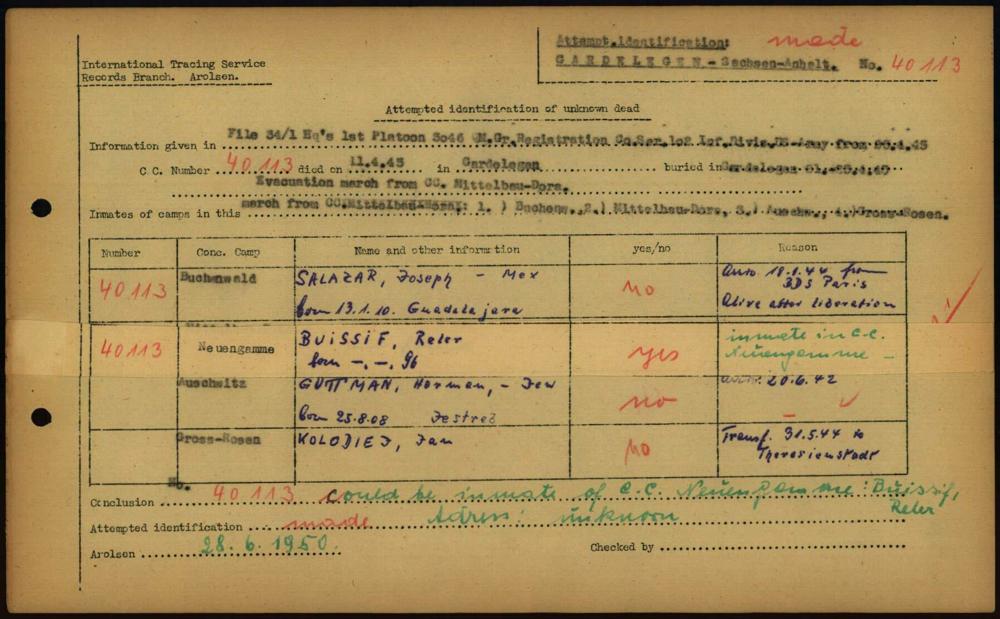 International Tracing Service
Records Branch. Arolsen.
Attempt.identification: made
GARDELEGEN - Sachsen-Anhalt. No. 40113
Attempted identification of unknown dead
Information given in File 34/1 Hq's 1st Platoon 3046 QM.Gr.Registration Co.Ser.102 Inf.Divis.US-Army from
C.C. Number 40113 died on 11.4.45 in Gardelegen buried in Gardelegen
Evacuation march from CC. Mittelbau-Dora.
Inmates of camps in this march from CC.Mittelbau 1.) Buchenw., 2.) Mittelbau-Dora, 3.) Auschw., 4.) Gross-Rosen.
Number Conc. Camp Name and other information yes/no Reason
40113 Buchenwald SALAZAR, Joseph - Mex no Arriv. 18.1.44 from
BDS Paris
born 13.1.10. Guadalajara Alive after liberation
40113 Neuengamme BUISSIF, Reler yes inmate in C.C.
born -.-. 96 Neuengamme -
Auschwitz GUTTMAN, Herman, - Jew no 20.6.42
born 25.8.08 Jestreb
Gross-Rosen KOLODIEJ, Jan no Transf. 31.5.44 to
Theresienstadt
Conclusion No. 40113 could be inmate of C.C. Neuengamme: Buissif,
Reler
Attempted identification made Adress: unknoon
Arolsen 28.6.1950. Checked by